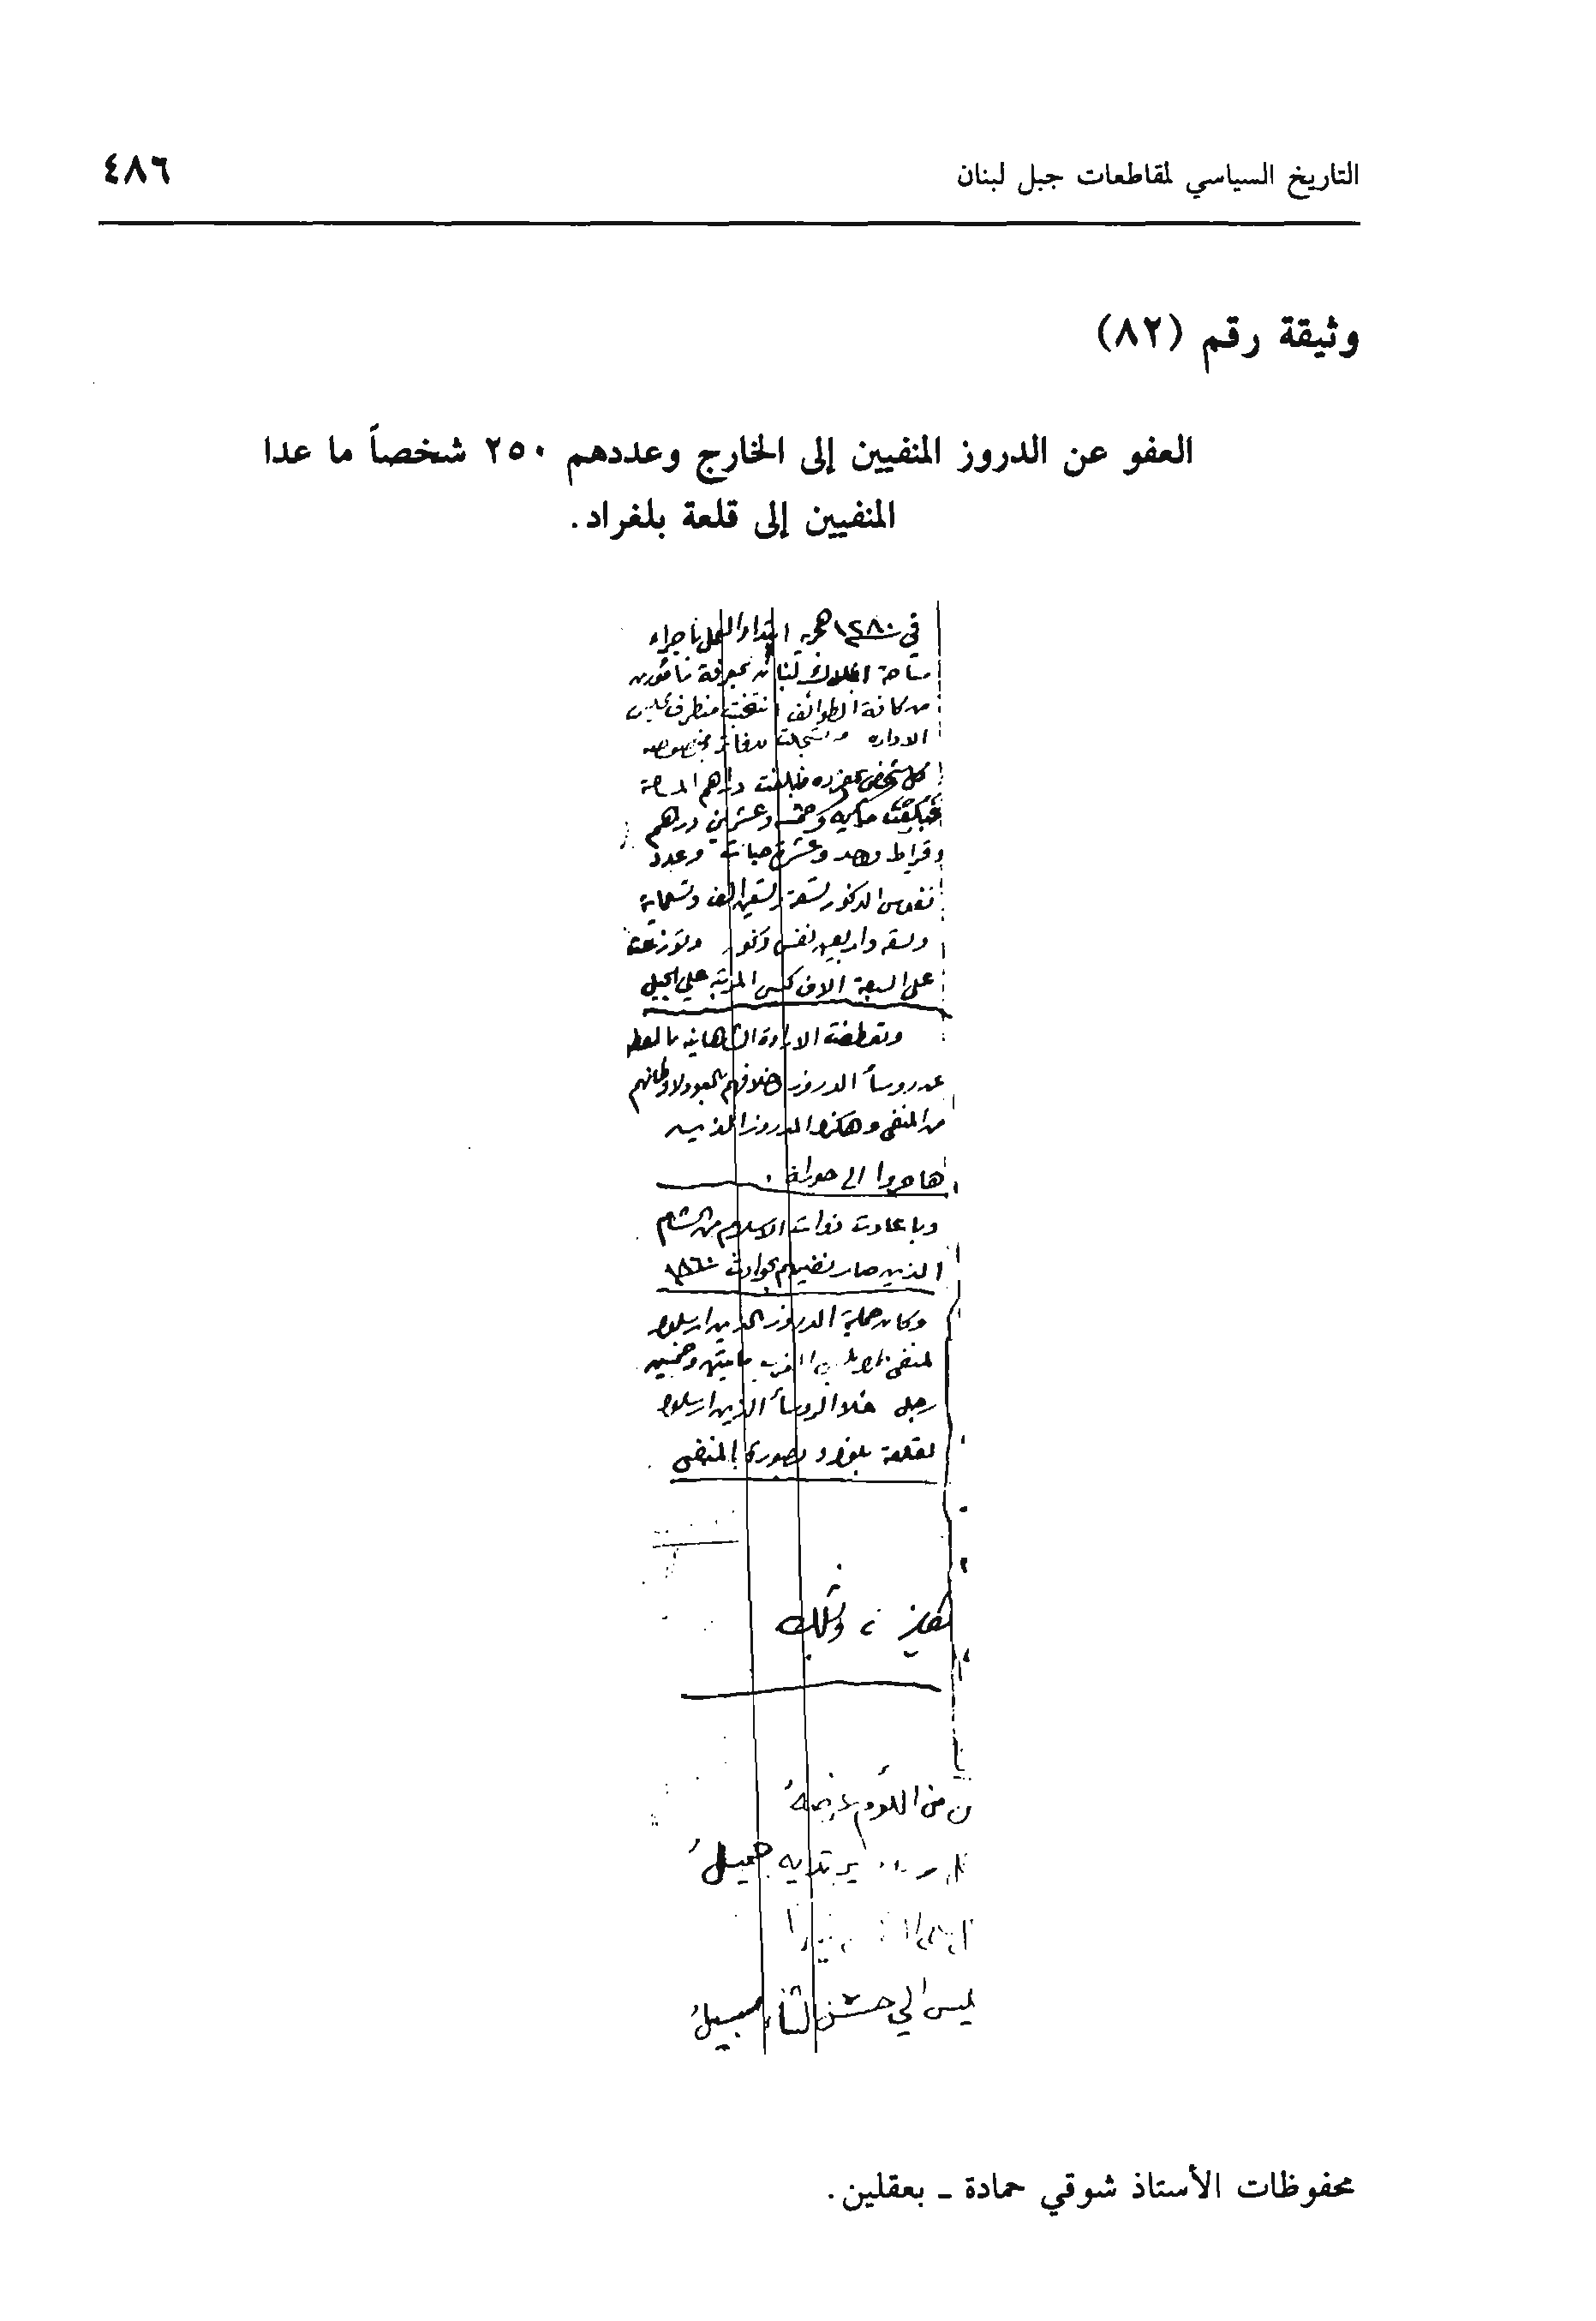 التاريخ السياسي لمقاطعات جبل لبنان
٤٨٦
وثيقة رقم (٨٢)
العفو عن الدروز المنفيين إلى الخارج وعددهم ٢٥٠ شخصاً ما عدا
المنفيين إلى قلعة بلغراد.
في ١٢٨٠ هجريه ابتداء العمل باجراء
مساحة املاك لبنان بمعرفة مأمورين
من كافة الطوائف انتخبت من طرف مجلس
الاداره وتسجلت بدفاتر مخصوصه
كل شخص بمفرده فبلغت دراهم المساحة
وخمسه وعشرين درهم
وقراط وحد وعشرة حبات وعدد
نفوس الذكور تسعة وتسعين الف وتسعماية
وتسعه واربعين نفس ذكور وتوزعت
على السبعة الاف كيس المرتبه على الجبل
وتعطفت الارادة الشاهانيه بالعفو
عن روسأ الدروز خلافهم بالعود لاوطانهم
من المنفى وهكذا الدروز الذين
هاجروا الى حوران .
وباعادت ذوات الاسلام من الشام
الذين صار نفيهم بحوادث ١٨٦٠
وكان جملة الدروز الذين ارسلوا
لمنفى الغرب مايتين وخمسين
رجل خلا الروسأ الذين ارسلوا
لقلعة بلغراد بصورة المنفى
من اللؤم عرضه
يرتديه جميل
ليس الى حسن الثناء سبيل
محفوظات الأستاذ شوقي حمادة ـ بعقلين.